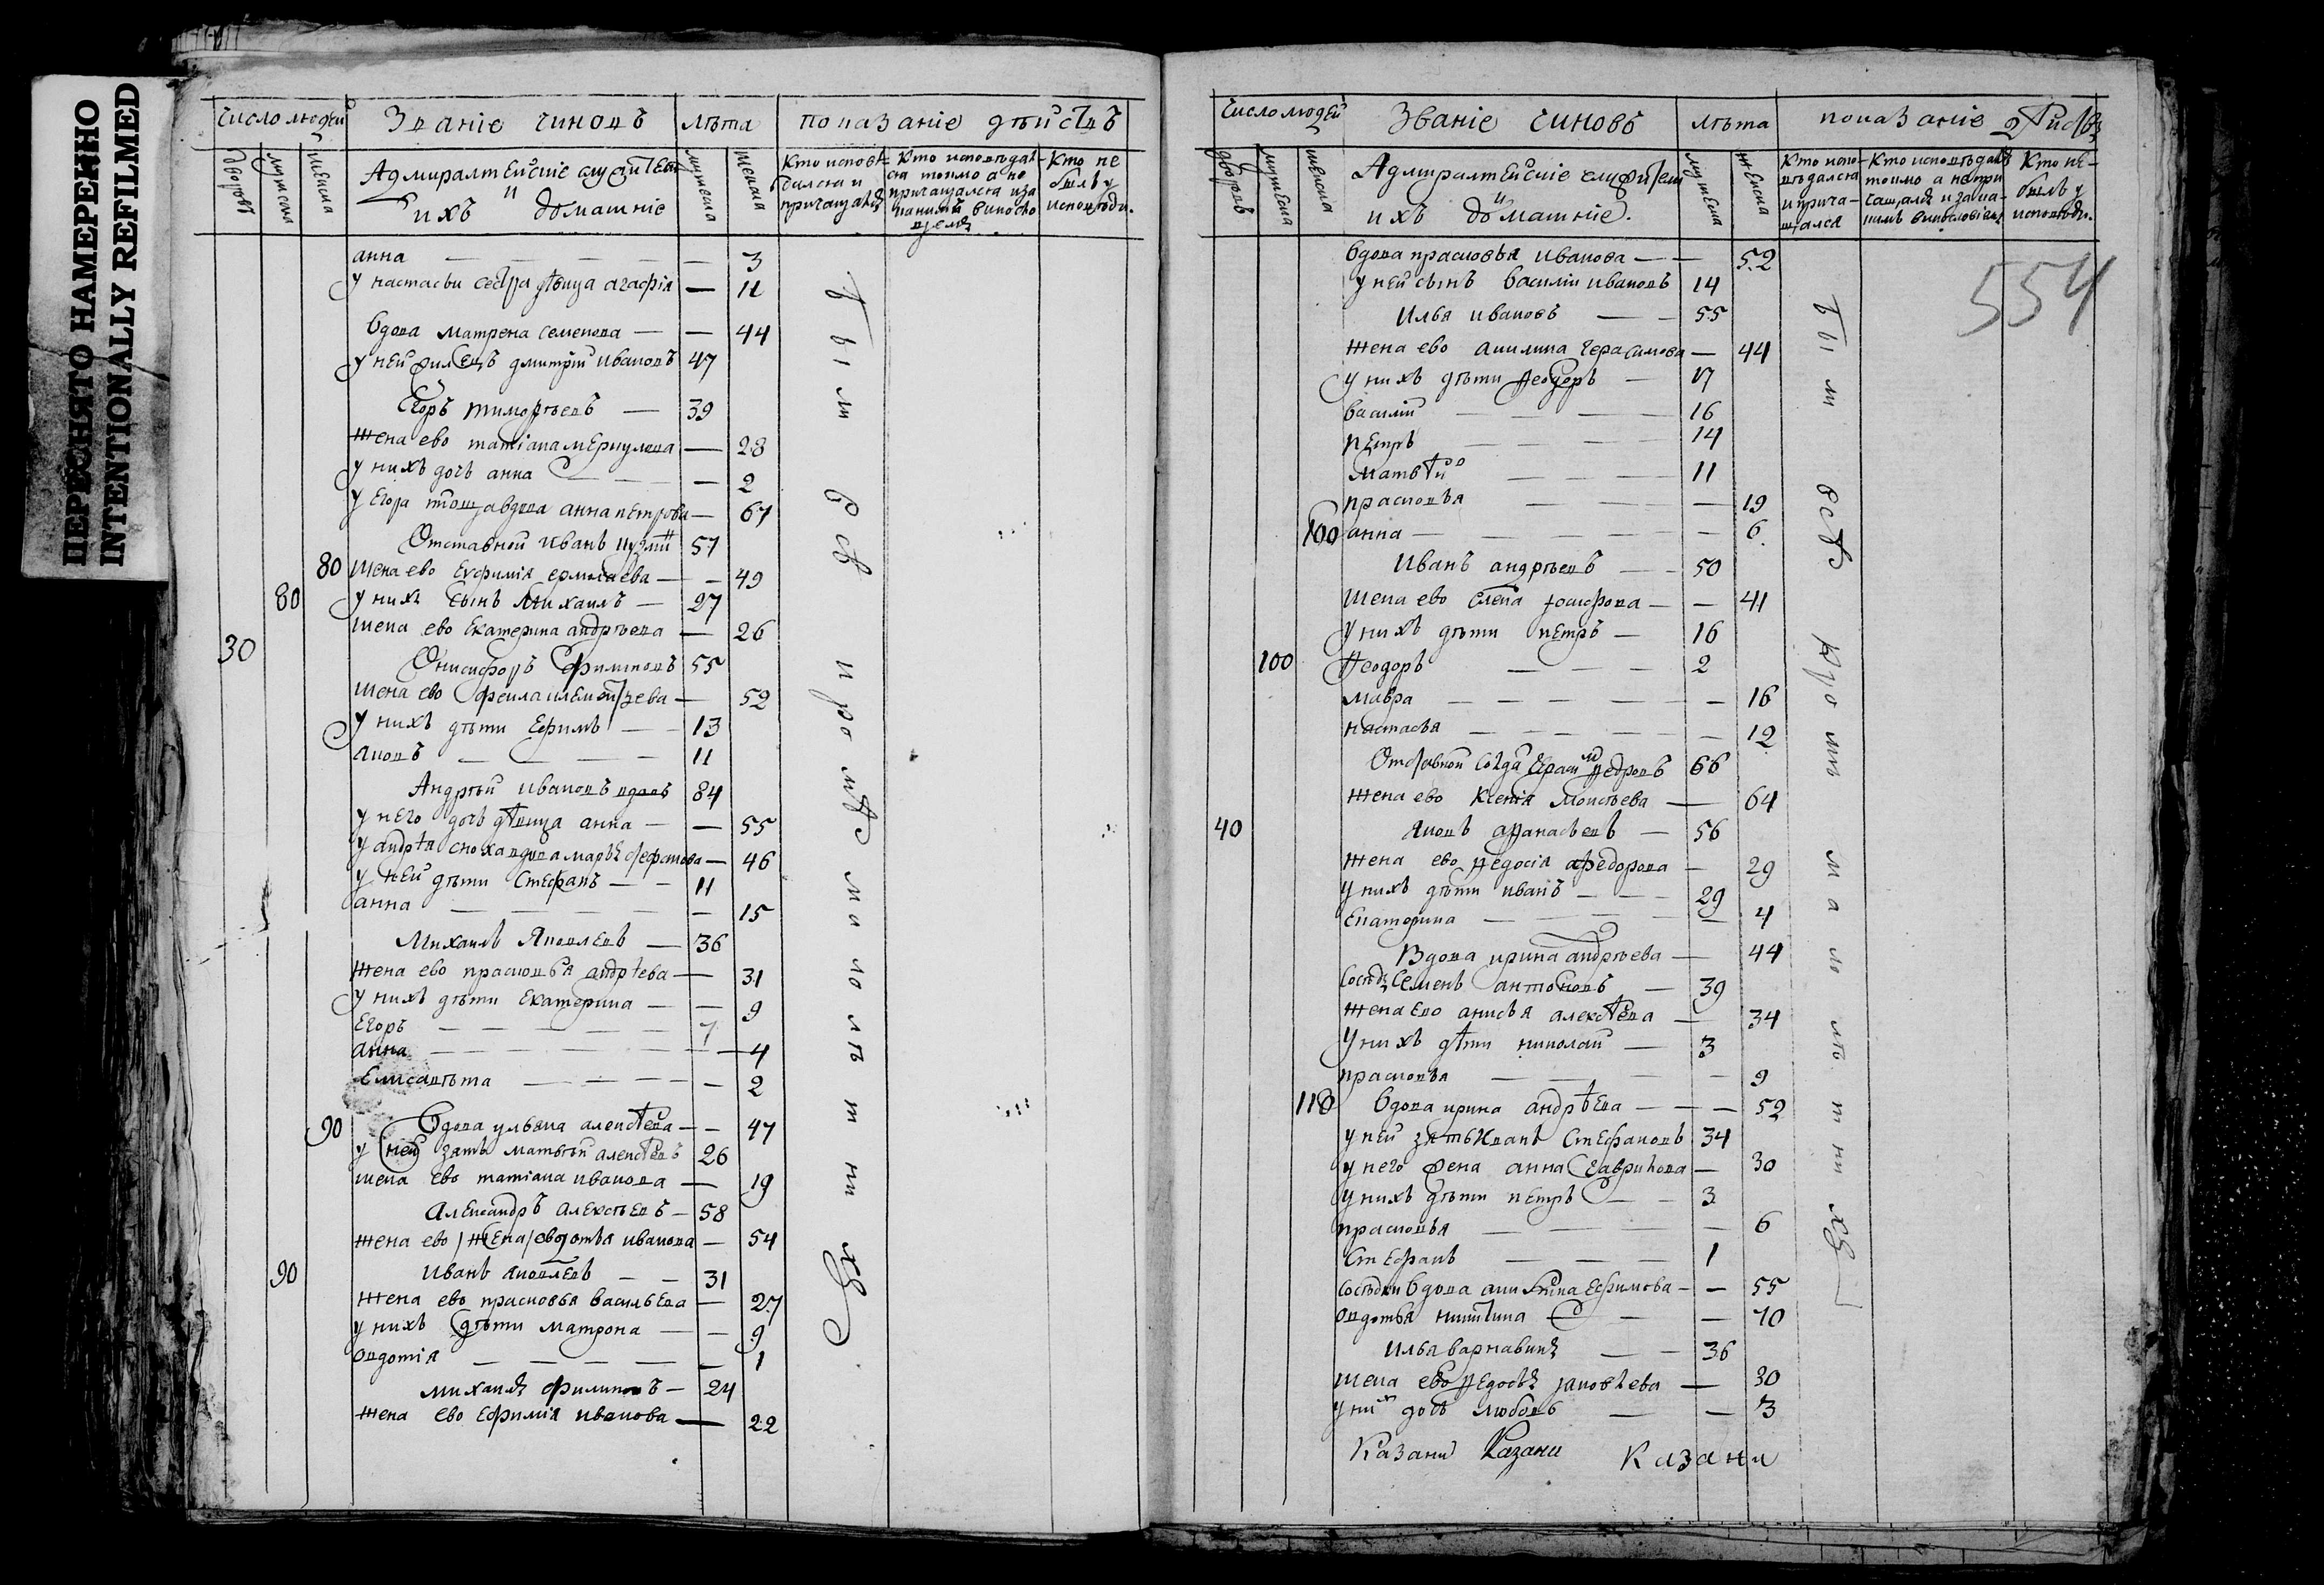 ПЕРЕСНЯТО НАМЕРЕННО
INTENTIONALLY REFILMED
число людей Званіе чиновъ лѣта показаніе дѣйствъ
дворовъ мужеска женска
Адмиралтейскіе служители
и
ихъ домашніе
мужеска женска
Кто исповѣдался и причащался
Кто исповѣдался токмо а не причащался и за какимъ винословіемъ
Кто не былъ у исповѣди.
анна — 3
у настасьи сестра дѣвица агафія — 11
вдова матрена семенова — 44
у ней дмитрій ивановъ 47
Егоръ тимофѣевъ — 39
жена ево татіана меркулова — 28
у нихъ дочь анна — 2
у Егора теща вдова анна петрова — 67
Отставной иванъ 57
80 жена ево Евфимія ермилаева — 49
80 у нихъ сынъ Михаилъ — 27
жена ево Екатерина андрѣева — 26
30 Онисифоръ Филиповъ 55
жена ево фекла — 52
у нихъ дѣти Ефимъ — 13
яковъ — 11
Андрѣй ивановъ вдовъ 84
у него дочь дѣвица анна — 55
у андрѣя сноха вдова марья стефанова — 46
у ней дѣти Стефанъ — 11
анна — 15
Михаилъ Яковлевъ — 36
жена ево прасковья андрѣева — 31
у нихъ дѣти Екатерина — 9
Егоръ — 7
анна — 4
Елисавѣта — 2
90 вдова ульяна алексѣева — 47
у ней зать матвѣй алексѣевъ 26
жена ево татіана иванова — 19
Александръ алексѣевъ — 58
жена ево /жена/ евдотья иванова — 54
90 Иванъ яковлевъ — 31
жена ево прасковья васильева — 27
у нихъ дѣти матрона — 9
овдотія — 1
михаилъ филиповъ — 24
жена ево Ефимія иванова — 22
были все кроме малолѣтнихъ
число людей Званіе чиновъ лѣта показаніе дѣйствъ
дворовъ мужеска женска
Адмиралтейскіе служители
и
ихъ домашніе.
мужеска женска
Кто исповѣдался и причащался
Кто исповѣдалъ токмо а не причащался и за какимъ винословіемъ
Кто не былъ у исповѣди.
554
вдова прасковья иванова — 52
у ней сынъ василіи ивановъ 14
Илья ивановъ — 55
жена ево акилина герасимова — 44
у нихъ дѣти Феодоръ — 17
василій — 16
петръ — 14
матвѣй — 11
прасковья — 19
100 анна — 6
Иванъ андрѣевъ — 50
жена ево елена — 41
у нихъ дѣти петръ — 16
100 Феодоръ — 2
мавра — 16
настасья — 12
Федровъ 66
жена ево Ксенія Моисѣева — 64
40 яковъ афанасьевъ — 56
жена ево Федосія афедорова — 29
у нихъ дѣти иванъ — 29
Екатерина — 4
Вдова ирина андрѣева — 44
Сосѣдъ Семенъ антоновъ — 39
жена ево анисья алексѣева — 34
У нихъ дѣти николай — 3
прасковья — 9
110 вдова ирина андрѣева — 52
у ней зять Иванъ Стефановъ 34
у него жена анна гаврилова — 30
у нихъ дѣти петръ — 3
прасковья — 6
Стефанъ — 1
сосѣдки вдова Ефимова — 55
овдотья никитина — 70
Илья варнавинъ — 36
жена ево Федосья яковлева — 30
у них дочь любовь — 3
были все кроме малолѣтнихъ
Казани Казани Казани